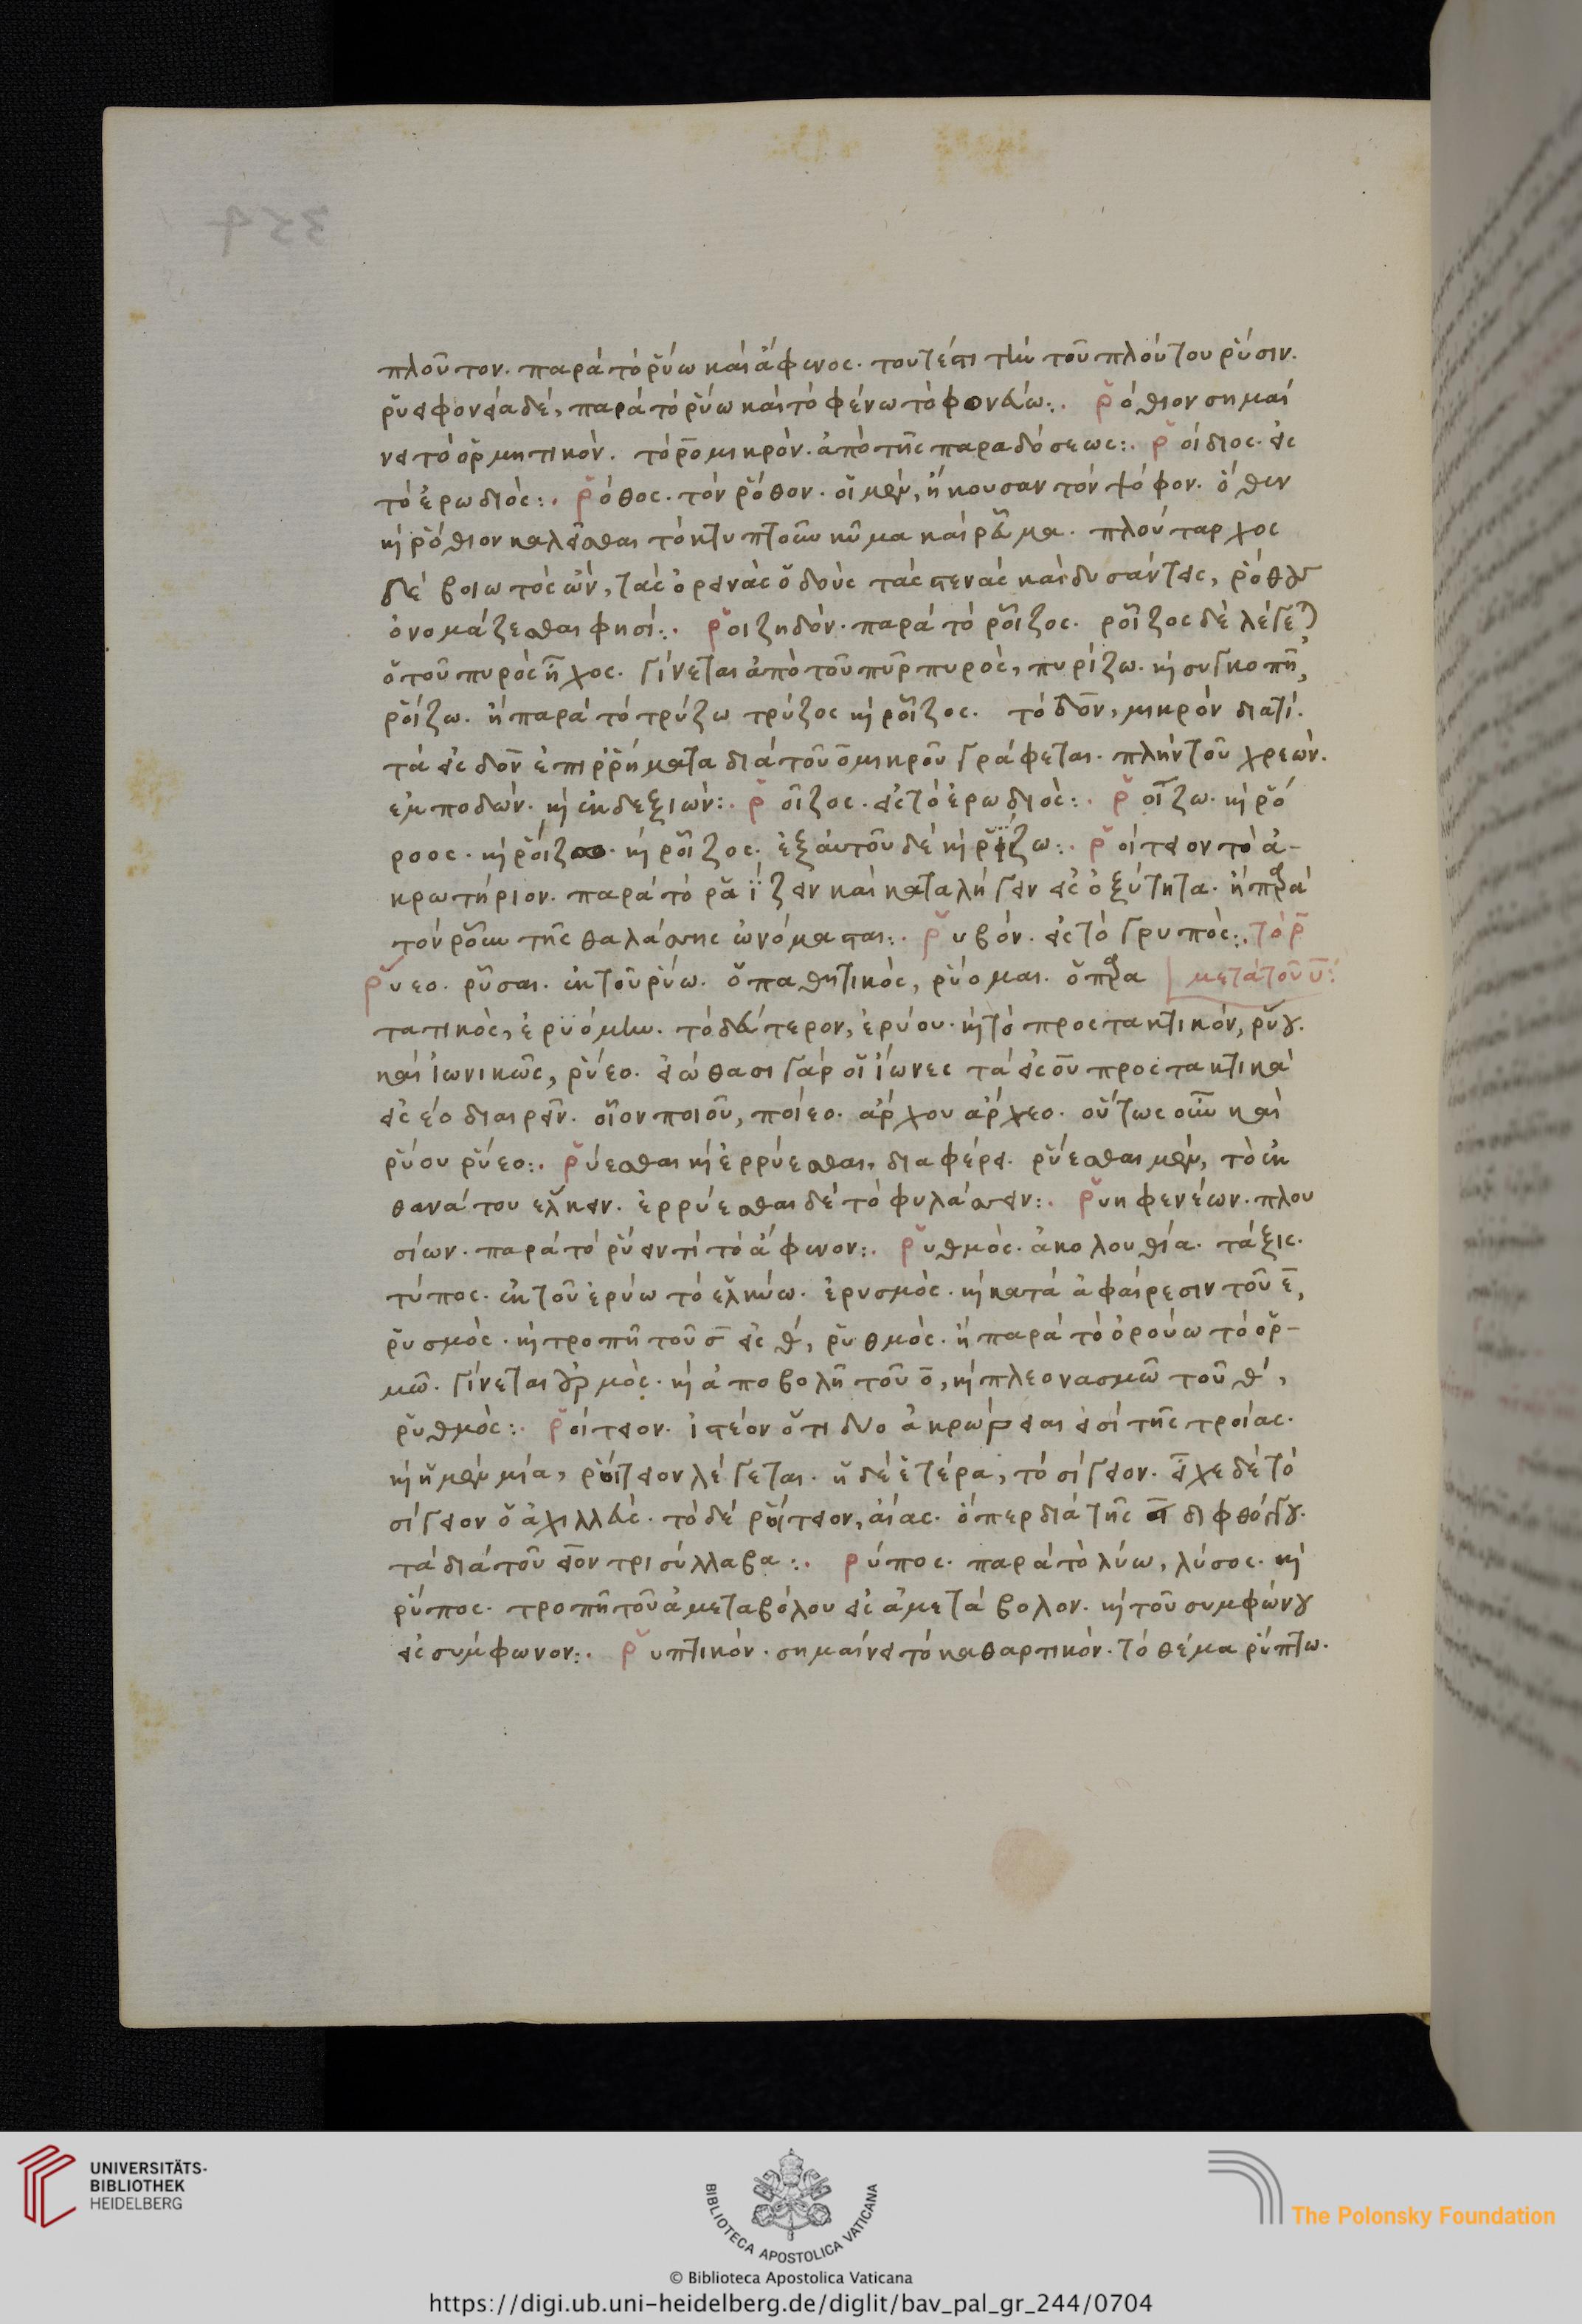 πλοῦτον. παρὰ τὸ ῥύω καὶ ἄφενος. τουτέστι τὴν τοῦ πλούτου ῥύσιν.
παρὰ τὸ ῥύω καὶ τὸ φένω τὸ φονεύω:. ῥόθιον σημαί
νει τὸ ὁρμητικόν. τὸ ρο μικρόν. ἀπὸ τῆς παραδόσεως:. ῥοίδιος. εἰς
τὸ ἐρωδιός:. ῥόθος. τὸν ῥόθον. οἱ μὲν, ἤκουσαν τὸν ψόφον. ὅθεν
κὶ ῥόθιον καλεῖσθαι τὸ κτυπτοῦν κῦμα καὶ ῥεῦμα. πλούταρχος
δὲ βοιωτὸς ὢν, τὰς ὀρεινὰς ὁδοὺς τὰς στενὰς καὶ δυσάντεις, ῥόθους
ὀνομάζεσθαι φησί:. ῥοιζηδόν. παρὰ τὸ ῥοῖζος. ῥοῖζος δὲ λέγεται
ὁ τοῦ πυρὸς ἦχος. γίνεται ἀπὸ τοῦ πῦρ πυρὸς, πυρίζω. κὶ συγκοπῆ,
ῥοίζω. ἢ παρὰ τὸ τρύζω τρύζος κὶ ῥοῖζος. τὸ δον, μικρὸν διατί.
τὰ εἰς δον ἐπιρρήματα διὰ τοῦ ο μικροῦ γράφεται. πλὴν τοῦ χρεών.
ἐμποδών. κὶ ἐκδεξιών:. ῥοῖζος. εἰς τὸ ἐρωδιός:. ῥοΐζω. κὶ ῥό
ροος. κὶ ῥοῖζος. ἐξ αὐτοῦ δὲ κὶ ῥοΐζω:. ῥοίτειον τὸ ἀ-
κρωτήριον. παρὰ τὸ ῥαΐζειν καὶ καταλήγειν εἰς ὀξύτητα. ἢ παρὰ
τὸν ῥοῦν τῆς θαλάσσης ὠνόμασται:. ῥυβόν. εἰς τὸ γρυπός:. τὸ ρ
ῥύεο. ῥῦσαι. ἐκ τοῦ ῥύω. ὁ παθητικὸς, ῥύομαι. ὁ παρα μετὰ τοῦ υ:
τατικὸς, ἐρυόμην. τὸ δεύτερον, ἐρύου. κὶ τὸ προστακτικόν, ῥύου.
καὶ ἰωνικῶς, ῥύεο. εἰώθασι γὰρ οἱ ἴωνες τὰ εἰς ου προστακτικὰ
εἰς εο διαιρεῖν. οἷον ποιοῦ, ποίεο. ἄρχου ἄρχεο. οὕτως οὖν καὶ
ῥύου ῥύεο:. ῥύεσθαι κὶ ἐρρύεσθαι, διαφέρει. ῥύεσθαι μὲν, τὸ ἐκ
θανάτου ἕλκειν. ἐρρύεσθαι δὲ τὸ φυλάσσειν:. ῥυηφενέων. πλου
σίων. παρὰ τὸ ῥύειν τὶ τὸ ἄφενον:. ῥυθμός. ἀκολουθία. τάξις.
τύπος. ἐκ τοῦ ἐρύω τὸ ἑλκύω. ἐρυσμός. κὶ κατὰ ἀφαίρεσιν τοῦ ε,
ῥυσμός. κὶ τροπῆ τοῦ σ εἰς θ, ῥυθμός. ἢ παρὰ τὸ ὀρούω τὸ ὁρ-
μῶ. γίνεται ὀρμός. κὶ ἀποβολῆ τοῦ ο, κὶ πλεονασμῶ τοῦ θ,
ῥυθμός:. ῥοίτειον. ἰστέον ὅτι δύο ἀκρώρειαι εἰσὶ τῆς τροίας.
κὶ ἡ μὲν μία, ῥοίτειον λέγεται. ἡ δὲ ἑτέρα, τὸ σίγειον. εἶχε δὲ τὸ
σίγειον ὁ ἀχιλλεύς. τὸ δὲ ῥοίτειον, αἴας. ὅπερ διὰ τῆς ει διφθόγγου.
τὰ διὰ τοῦ ειον τρισύλλαβα:. ρύπος. παρὰ τὸ λύω, λύσος. κὶ
ῥύπος. τροπῆ τοῦ ἀμεταβόλου εἰς ἀμετάβολον. κὶ τοῦ συμφώνου
εἰς σύμφωνον:. ῥυπτικόν. σημαίνει τὸ καθαρτικόν. τὸ θέμα ῥύπτω.
UNIVERSITÄTS-
BIBLIOTHEK
HEIDELBERG
BIBLIOTECA APOSTOLICA VATICANA
The Polonsky Foundation
© Biblioteca Apostolica Vaticana
https://digi.ub.uni-heidelberg.de/diglit/bav_pal_gr_244/0704